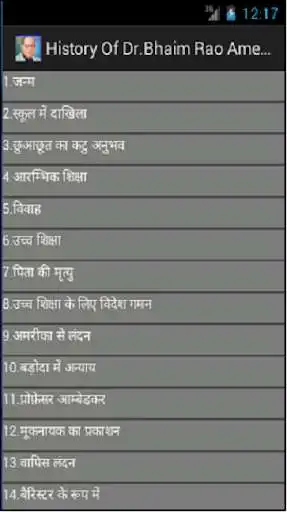 3G 12:17
History Of Dr.Bhaim Rao Ame...
1.जन्म
2.स्कूल में दाखिला
3.छुआछूत का कटु अनुभव
4.आरम्भिक शिक्षा
5.विवाह
6.उच्च शिक्षा
7.पिता की मृत्यु
8.उच्च शिक्षा के लिए विदेश गमन
9.अमरीका से लंदन
10.बड़ोदा में अन्याय
11.प्रोफ़ेसर आम्बेडकर
12.मूकनायक का प्रकाशन
13.वापिस लंदन
14.बैरिस्टर के रूप में